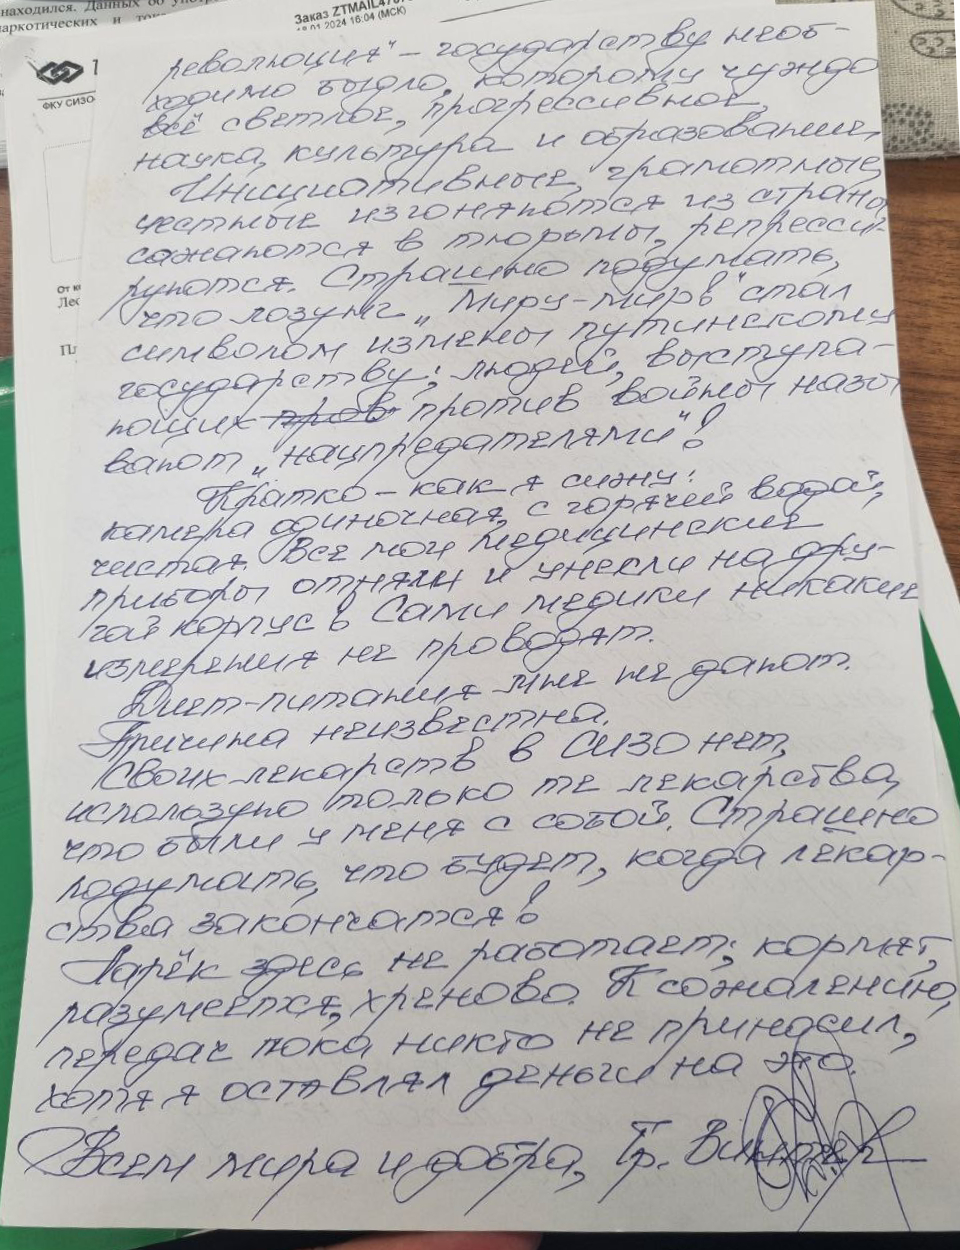 находился. Данных об употр
наркотических и ток
Заказ ZTMAIL
.01.2024 16:04 (МСК)
ФКУ СИЗО-
От к
Лес
Пл
революция" – государству необ-
ходимо быдло, которому чуждо
всё светлое, прогрессивное,
наука, культура и образование.
Инициативные, грамотные,
честные изгоняются из страны,
сажаются в тюрьмы, репресси-
руются. Страшно подумать,
что лозунг „Миру-мир" стал
символом измены путинскому
государству; людей, выступа-
ющих против войны назы
вают „нацпредателями"!
Кратко – как я сижу:
камера одиночная, с горячей водой,
чистая. Все мои медицинские
приборы отняли и унесли на дру-
гой корпус. Сами медики никакие
измерения не проводят.
Диет-питания мне не дают.
Причина неизвестна.
Своих лекарств в СИЗО нет,
использую только те лекарства,
что были у меня с собой. Страшно
подумать, что будет, когда лекар-
ства закончатся!
Ларёк здесь не работает; кормят,
разумеется, хреново. К сожалению,
передач пока никто не приносил,
хотя я оставлял деньги на это.
Всем мира и добра, Гр. Винтер